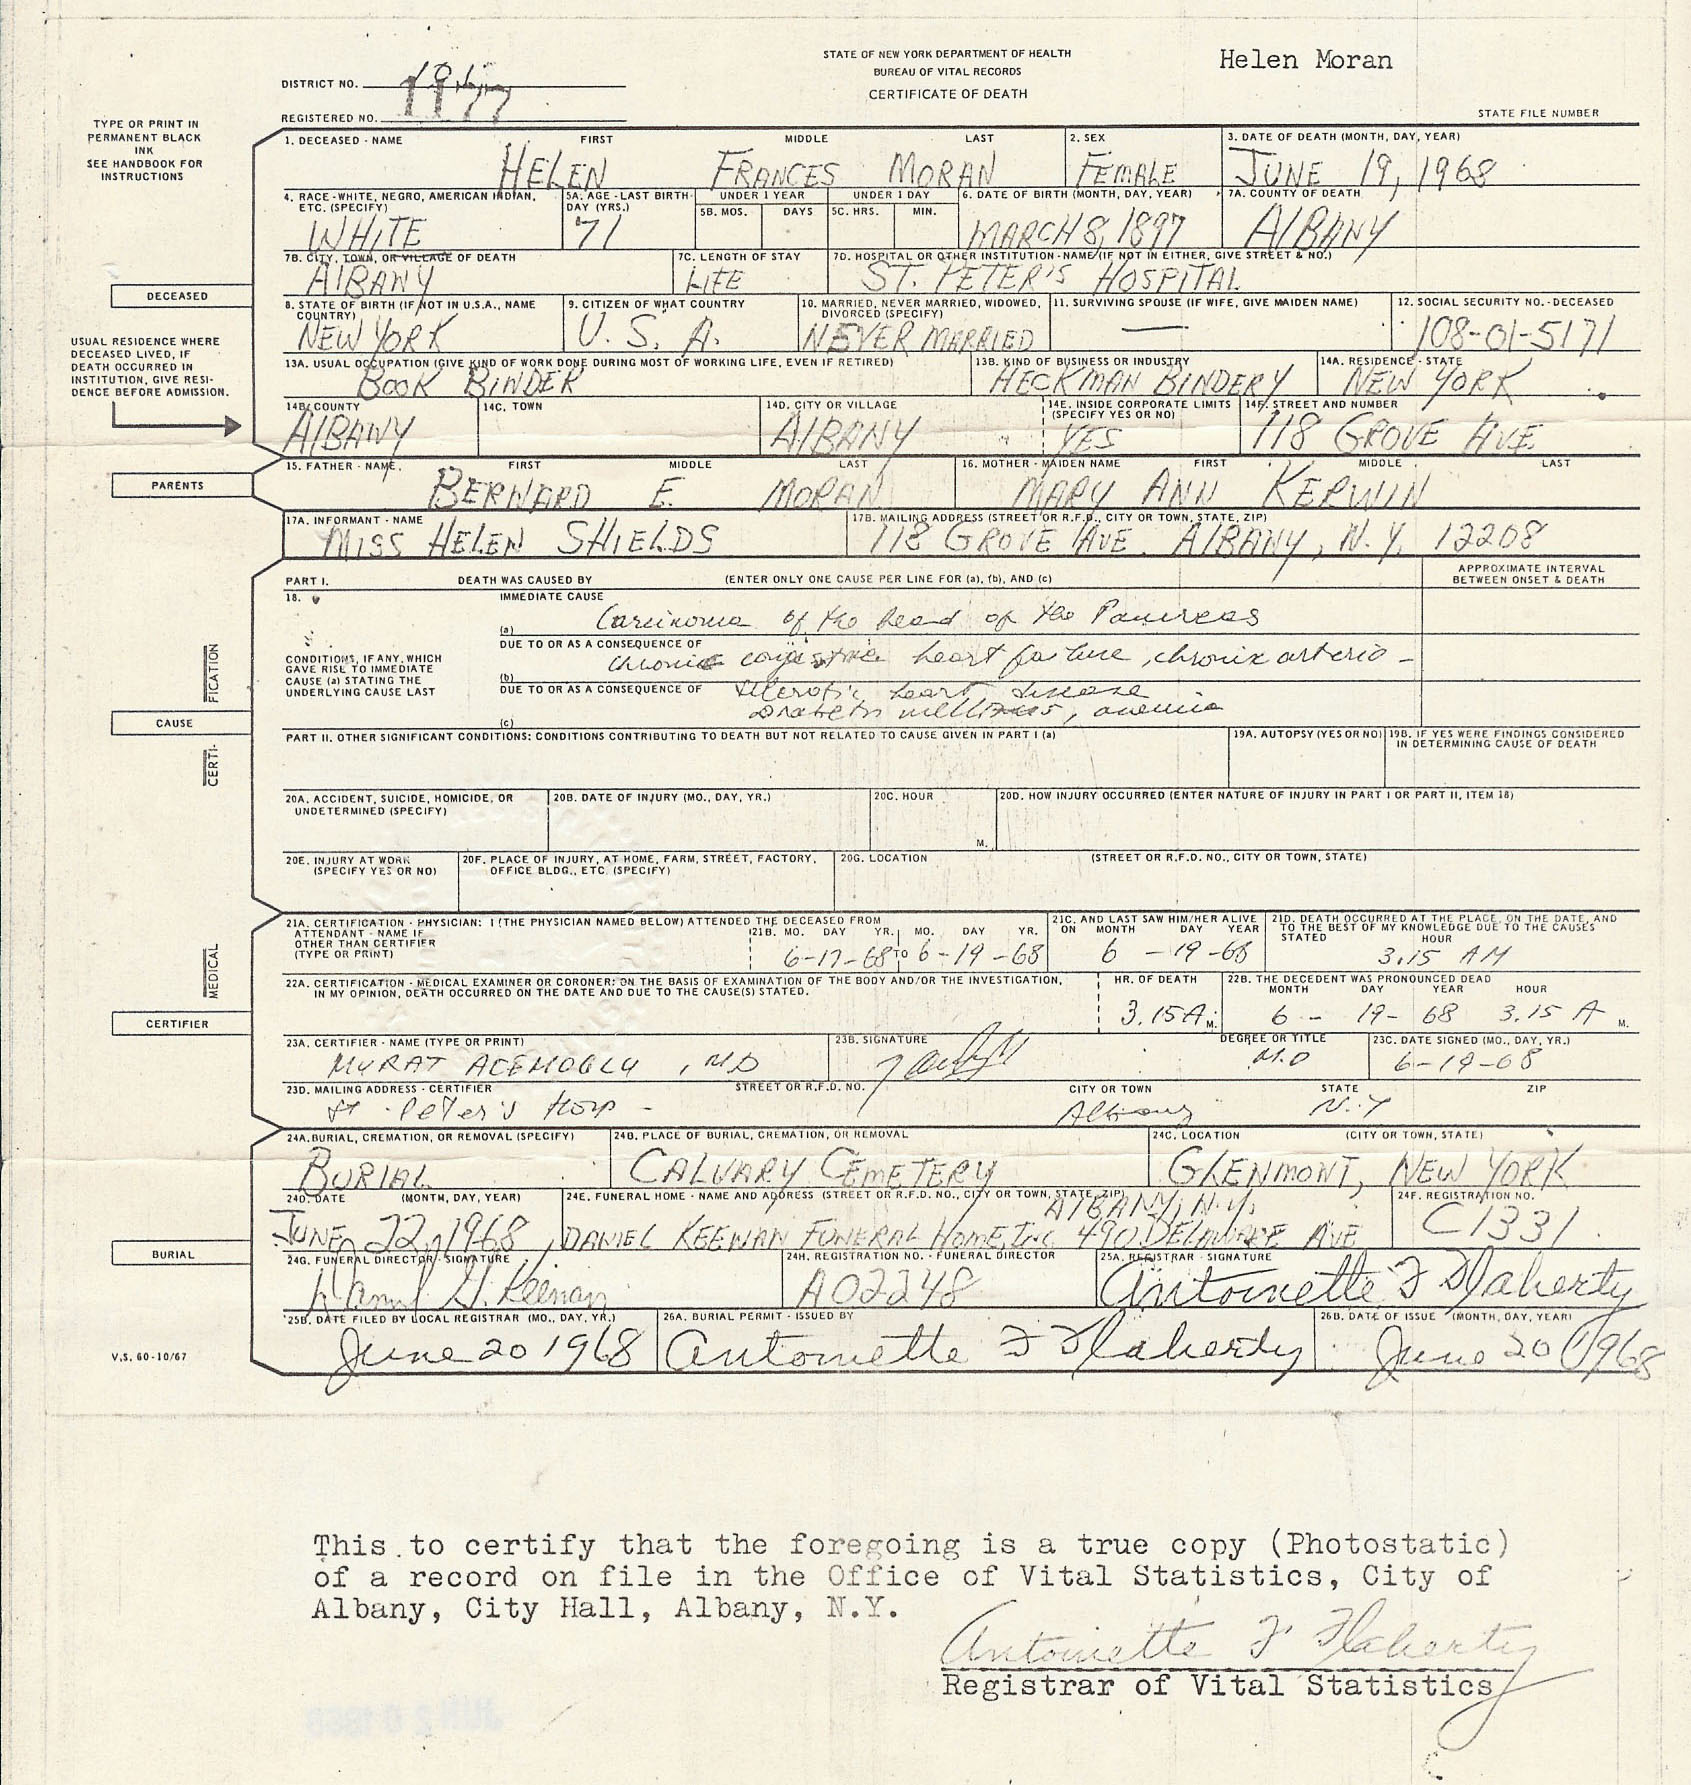 STATE OF NEW YORK DEPARTMENT OF HEALTH
BUREAU OF VITAL RECORDS
CERTIFICATE OF DEATH
Helen Moran
DISTRICT NO.
REGISTERED NO. 1177
STATE FILE NUMBER
TYPE OR PRINT IN
PERMANENT BLACK
INK
SEE HANDBOOK FOR
INSTRUCTIONS
1. DECEASED - NAME FIRST MIDDLE LAST 2. SEX 3. DATE OF DEATH (MONTH, DAY, YEAR)
HELEN FRANCES MORAN FEMALE JUNE 19, 1968
4. RACE - WHITE, NEGRO, AMERICAN INDIAN, ETC. (SPECIFY) 5A. AGE - LAST BIRTHDAY (YRS.) UNDER 1 YEAR UNDER 1 DAY 6. DATE OF BIRTH (MONTH, DAY, YEAR) 7A. COUNTY OF DEATH
5B. MOS. DAYS 5C. HRS. MIN.
WHITE 71 MARCH 8, 1897 ALBANY
7B. CITY, TOWN, OR VILLAGE OF DEATH 7C. LENGTH OF STAY 7D. HOSPITAL OR OTHER INSTITUTION - NAME (IF NOT IN EITHER, GIVE STREET & NO.)
ALBANY LIFE ST. PETER'S HOSPITAL
DECEASED
8. STATE OF BIRTH (IF NOT IN U.S.A., NAME COUNTRY) 9. CITIZEN OF WHAT COUNTRY 10. MARRIED, NEVER MARRIED, WIDOWED, DIVORCED (SPECIFY) 11. SURVIVING SPOUSE (IF WIFE, GIVE MAIDEN NAME) 12. SOCIAL SECURITY NO. - DECEASED
NEW YORK U. S. A. NEVER MARRIED — 108-01-5171
USUAL RESIDENCE WHERE
DECEASED LIVED, IF
DEATH OCCURRED IN
INSTITUTION, GIVE RESI-
DENCE BEFORE ADMISSION.
13A. USUAL OCCUPATION (GIVE KIND OF WORK DONE DURING MOST OF WORKING LIFE, EVEN IF RETIRED) 13B. KIND OF BUSINESS OR INDUSTRY 14A. RESIDENCE - STATE
BOOK BINDER HECKMAN BINDERY NEW YORK
14B. COUNTY 14C. TOWN 14D. CITY OR VILLAGE 14E. INSIDE CORPORATE LIMITS (SPECIFY YES OR NO) 14F. STREET AND NUMBER
ALBANY ALBANY YES 118 GROVE AVE.
PARENTS
15. FATHER - NAME, FIRST MIDDLE LAST 16. MOTHER - MAIDEN NAME FIRST MIDDLE LAST
BERNARD E. MORAN MARY ANN KERWIN
17A. INFORMANT - NAME 17B. MAILING ADDRESS (STREET OR R.F.D., CITY OR TOWN, STATE, ZIP)
MISS HELEN SHIELDS 118 GROVE AVE. ALBANY, N.Y. 12208
PART I. DEATH WAS CAUSED BY (ENTER ONLY ONE CAUSE PER LINE FOR (a), (b), AND (c) APPROXIMATE INTERVAL BETWEEN ONSET & DEATH
18. IMMEDIATE CAUSE
(a) Carcinoma of the head of the Pancreas
DUE TO OR AS A CONSEQUENCE OF
(b) chronic congestive heart failure, chronic arterio-
CONDITIONS, IF ANY, WHICH
GAVE RISE TO IMMEDIATE
CAUSE (a) STATING THE
UNDERLYING CAUSE LAST
DUE TO OR AS A CONSEQUENCE OF sclerotic heart disease
(c) Diabetes mellitus, anemia
CAUSE
MEDICAL CERTIFICATION
PART II. OTHER SIGNIFICANT CONDITIONS: CONDITIONS CONTRIBUTING TO DEATH BUT NOT RELATED TO CAUSE GIVEN IN PART I (a) 19A. AUTOPSY (YES OR NO) 19B. IF YES WERE FINDINGS CONSIDERED IN DETERMINING CAUSE OF DEATH
20A. ACCIDENT, SUICIDE, HOMICIDE, OR UNDETERMINED (SPECIFY) 20B. DATE OF INJURY (MO., DAY, YR.) 20C. HOUR M. 20D. HOW INJURY OCCURRED (ENTER NATURE OF INJURY IN PART I OR PART II, ITEM 18)
20E. INJURY AT WORK (SPECIFY YES OR NO) 20F. PLACE OF INJURY, AT HOME, FARM, STREET, FACTORY, OFFICE BLDG., ETC. (SPECIFY) 20G. LOCATION (STREET OR R.F.D. NO., CITY OR TOWN, STATE)
21A. CERTIFICATION - PHYSICIAN: I (THE PHYSICIAN NAMED BELOW) ATTENDED THE DECEASED FROM 21C. AND LAST SAW HIM/HER ALIVE ON MONTH DAY YEAR 21D. DEATH OCCURRED AT THE PLACE, ON THE DATE, AND TO THE BEST OF MY KNOWLEDGE DUE TO THE CAUSES STATED HOUR
ATTENDANT - NAME IF OTHER THAN CERTIFIER (TYPE OR PRINT) 21B. MO. DAY YR. MO. DAY YR.
6-17-68 TO 6-19-68 6-19-68 3.15 AM
22A. CERTIFICATION - MEDICAL EXAMINER OR CORONER: ON THE BASIS OF EXAMINATION OF THE BODY AND/OR THE INVESTIGATION, IN MY OPINION, DEATH OCCURRED ON THE DATE AND DUE TO THE CAUSE(S) STATED. HR. OF DEATH 22B. THE DECEDENT WAS PRONOUNCED DEAD MONTH DAY YEAR HOUR
3.15 A M. 6-19-68 3.15 A M.
CERTIFIER
23A. CERTIFIER - NAME (TYPE OR PRINT) 23B. SIGNATURE DEGREE OR TITLE 23C. DATE SIGNED (MO., DAY, YR.)
MURAT ACEMOGLU, MD M.D 6-19-68
23D. MAILING ADDRESS - CERTIFIER STREET OR R.F.D. NO. CITY OR TOWN STATE ZIP
St. Peter's Hosp - Albany N.Y
24A. BURIAL, CREMATION, OR REMOVAL (SPECIFY) 24B. PLACE OF BURIAL, CREMATION, OR REMOVAL 24C. LOCATION (CITY OR TOWN, STATE)
BURIAL CALVARY CEMETERY GLENMONT, NEW YORK
24D. DATE (MONTH, DAY, YEAR) 24E. FUNERAL HOME - NAME AND ADDRESS (STREET OR R.F.D. NO., CITY OR TOWN, STATE, ZIP) 24F. REGISTRATION NO.
ALBANY, N.Y.
JUNE 22, 1968 DANIEL KEENAN FUNERAL HOME, INC. 490 DELAWARE AVE C1331
BURIAL
24G. FUNERAL DIRECTOR - SIGNATURE 24H. REGISTRATION NO. - FUNERAL DIRECTOR 25A. REGISTRAR - SIGNATURE
Daniel G. Keenan A02248 Antoinette F Flaherty
25B. DATE FILED BY LOCAL REGISTRAR (MO., DAY, YR.) 26A. BURIAL PERMIT - ISSUED BY 26B. DATE OF ISSUE (MONTH, DAY, YEAR)
June 20 1968 Antoinette F Flaherty June 20 1968
V.S. 60-10/67
This to certify that the foregoing is a true copy (Photostatic)
of a record on file in the Office of Vital Statistics, City of
Albany, City Hall, Albany, N.Y.
Antoinette F Flaherty
Registrar of Vital Statistics